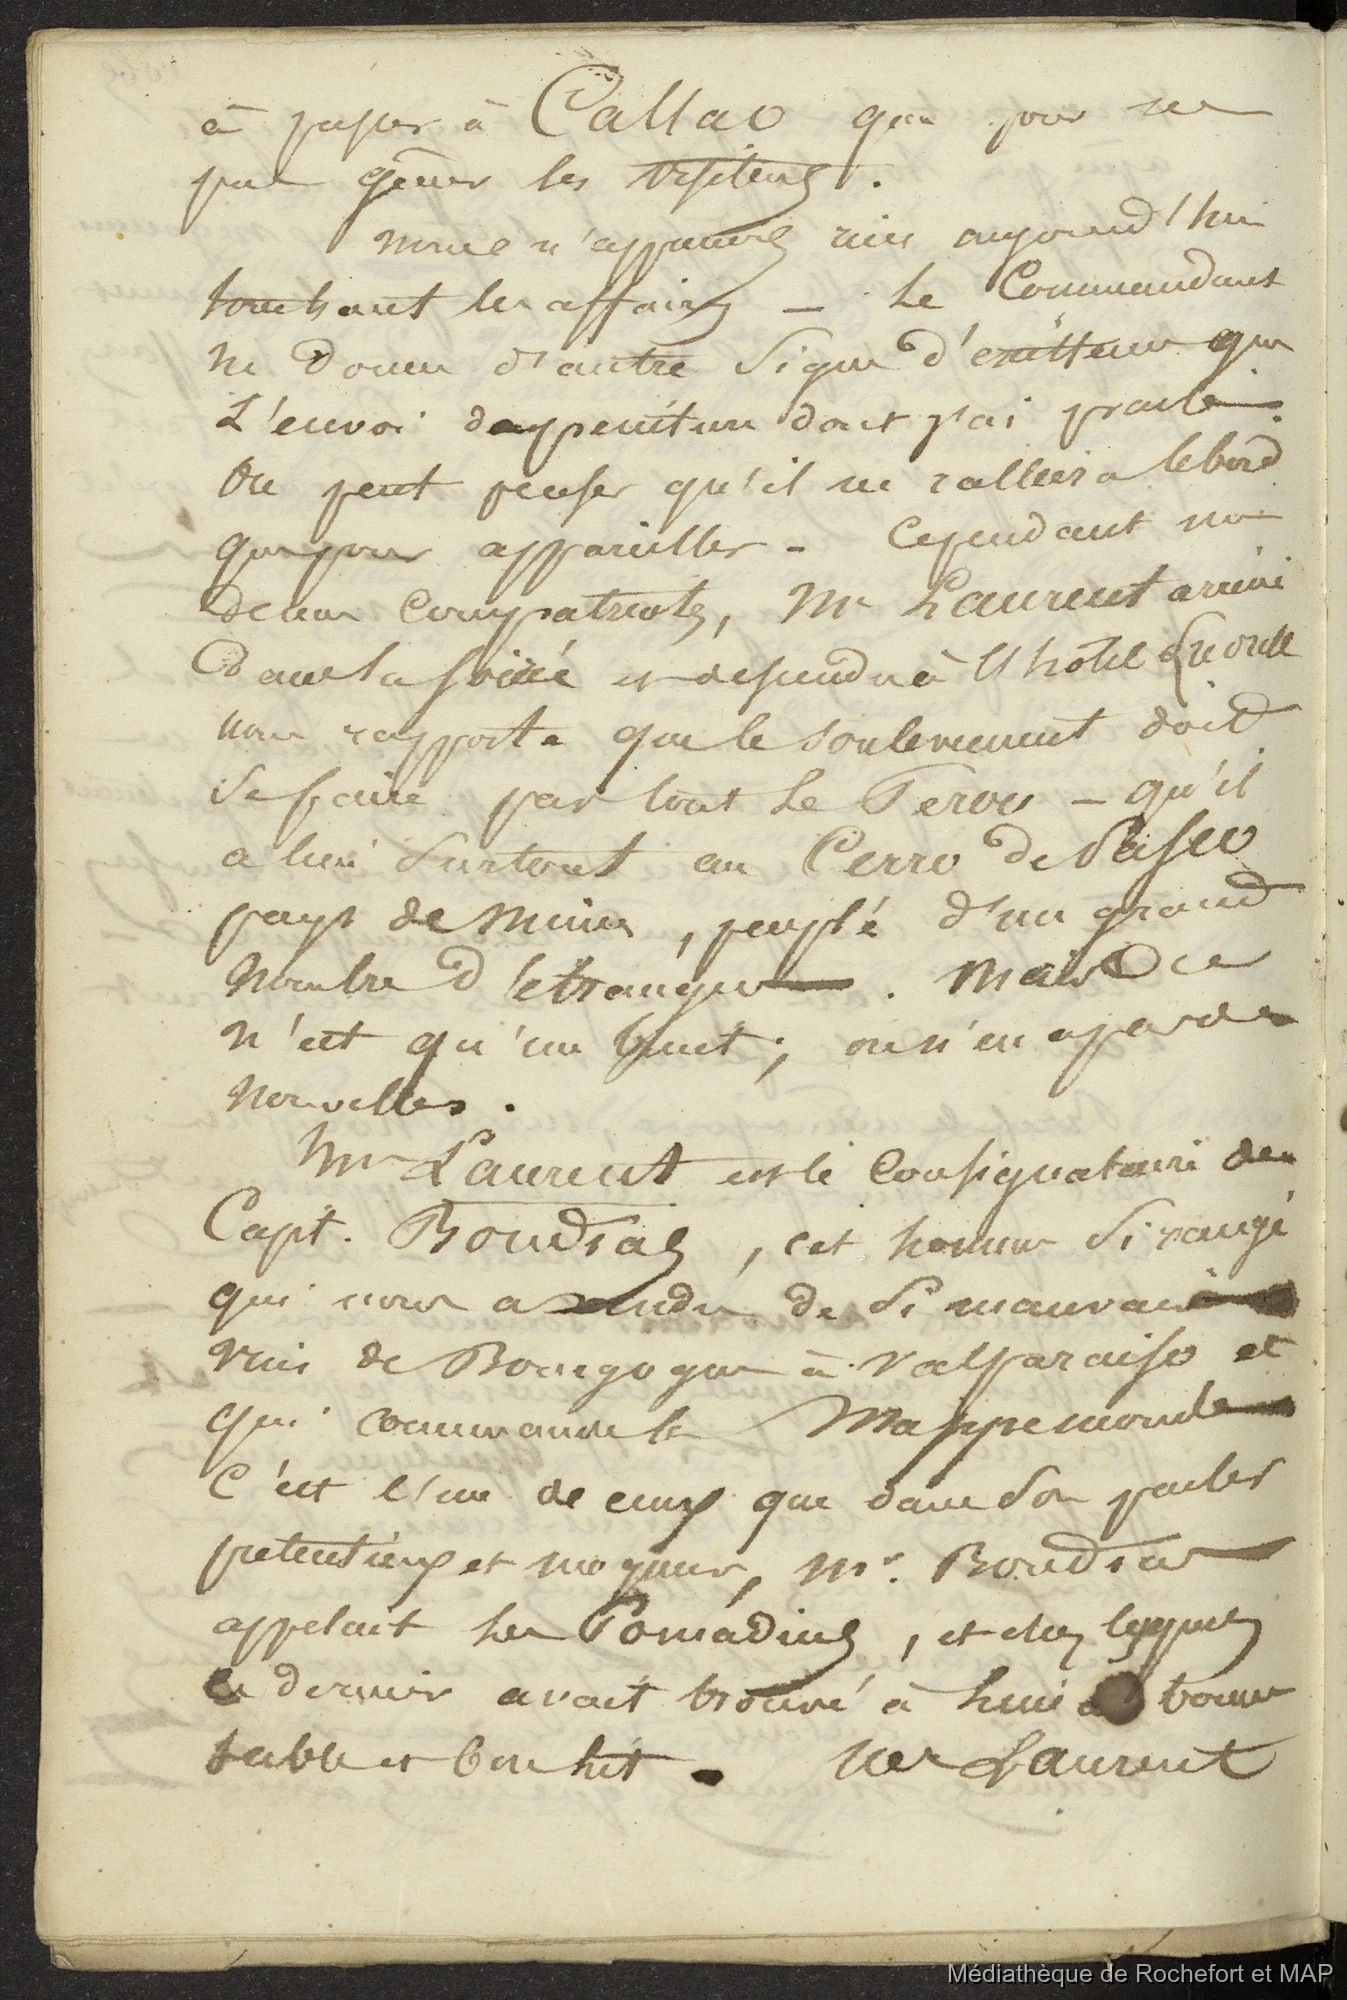 à passer à Callao que pour ne
pas gêner les visiteurs.
Nous n'apprenons rien aujourd'hui
touchant les affaires - Le Commandant
ne donne d'autre signe d'existence que
L'envoi dont j'ai parlé.
On peut penser qu'il ne ralliera le bord
que pour appareiller - Cependant nos
deux compatriotes, Mr Laurent arrivé
dans la soirée et descendu à l'hôtel
nous rapporte que le soulevement doit
se faire par tout le Perou - qu'il
a lieu surtout au Cerro de Pasco
pays de Mines, peuplé d'un grand
nombre d'étrangers. Mais ce
n'est qu'un bruit; on n'en a pas de
nouvelles.
Mr Laurent est le consignataire du
Capt. Boudias, cet homme si rangé
qui nous a vendu de si mauvais
vin de Bourgogne à Valparaiso et
qui commande le Mappemonde
C'est l'un de ceux que dans son parler
pretentieux et moqueur, Mr. Boudias
appelait les Pomadins, et chez lesquels
ce dernier avait trouvé à Lima bonne
table et bon lit. Mr Laurent
Médiathèque de Rochefort et MAP